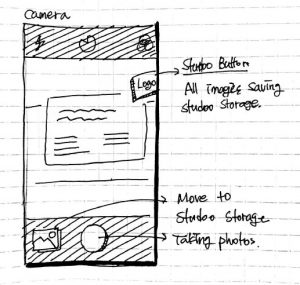 Camera
Logo
Studoo Button
All Images Saving
Studoo Storage.
Move to
Studoo Storage
Taking photos.